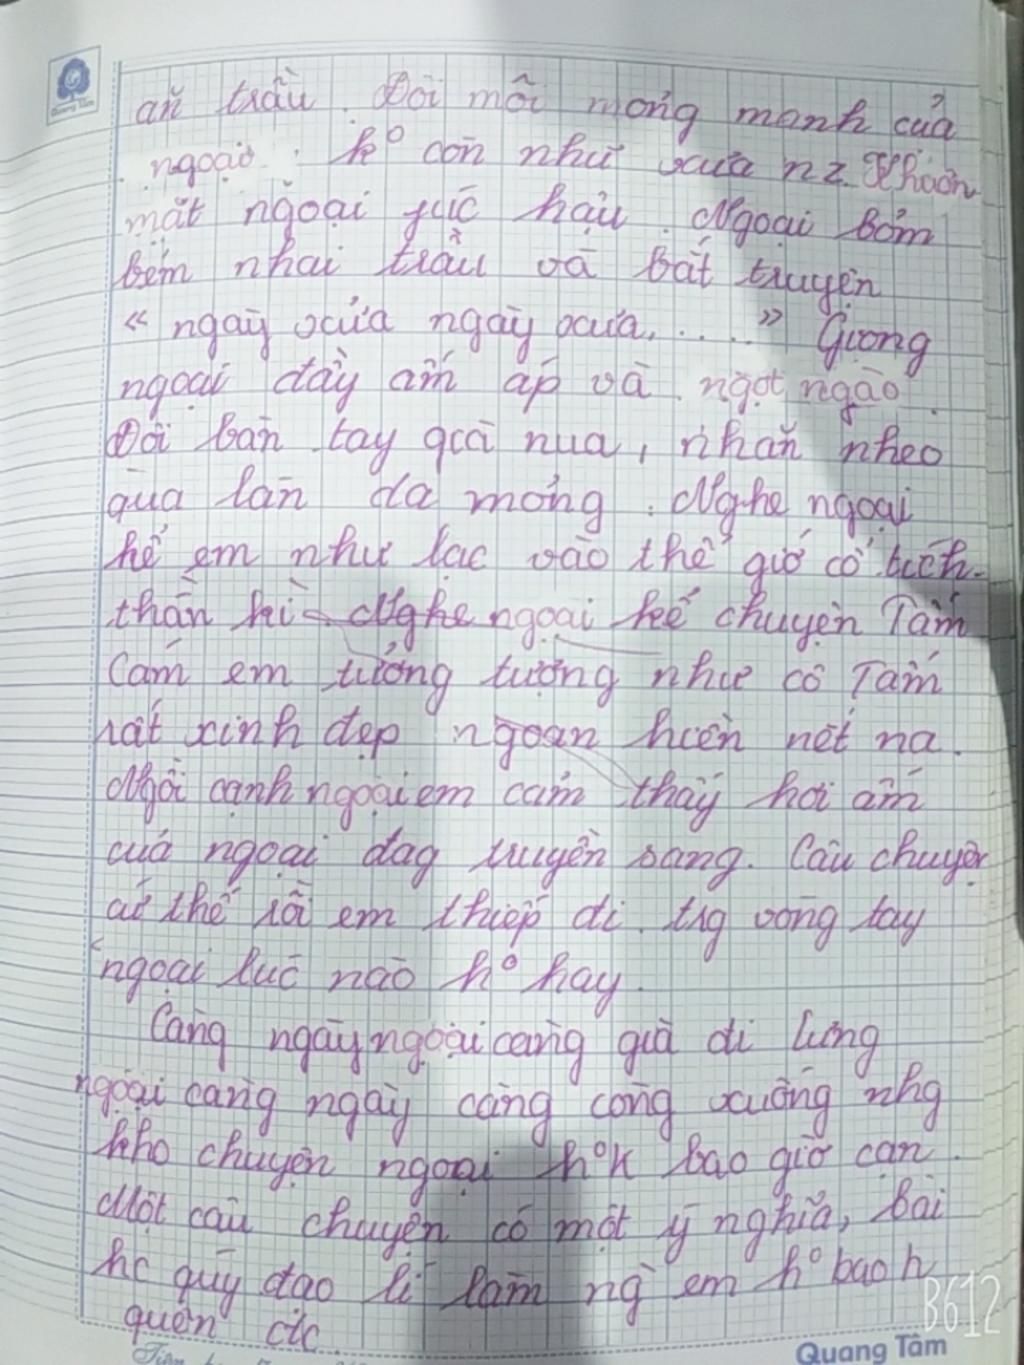 Quang Tâm
ăn trầu. Đôi môi mỏng manh của
ngoại. ko còn như xưa nz. Khuôn
mặt ngoại fúc hậu. Ngoại bỏm
bẻm nhai trầu và bắt truyện
" ngày xửa ngày xưa,.... " Giọng
ngoại đầy ấm áp và ngọt ngào.
Đôi bàn tay già nua, nhăn nheo
qua làn da mỏng. Nghe ngoại
kể em như lạc vào thế giớ cổ tích
thần kì Nghe ngoại kể chuyện Tấm
Cám em tưởng tượng như cô Tấm
rất xinh đẹp ngoan hiền nết na.
Ngồi cạnh ngoại em cảm thấy hơi ấm
của ngoại đag truyền sang. Câu chuyện
cứ thế rồi em thiếp đi trg vòng tay
ngoại lúc nào ko hay.
Càng ngày ngoại càng già đi lưng
ngoại càng ngày càng còng xuống nhg
kho chuyện ngoại kok bao giờ cạn.
Một câu chuyện có một ý nghĩa, bài
hc quý đạo lí làm ng` em ko bao h
quên đc
B612
Quang Tâm